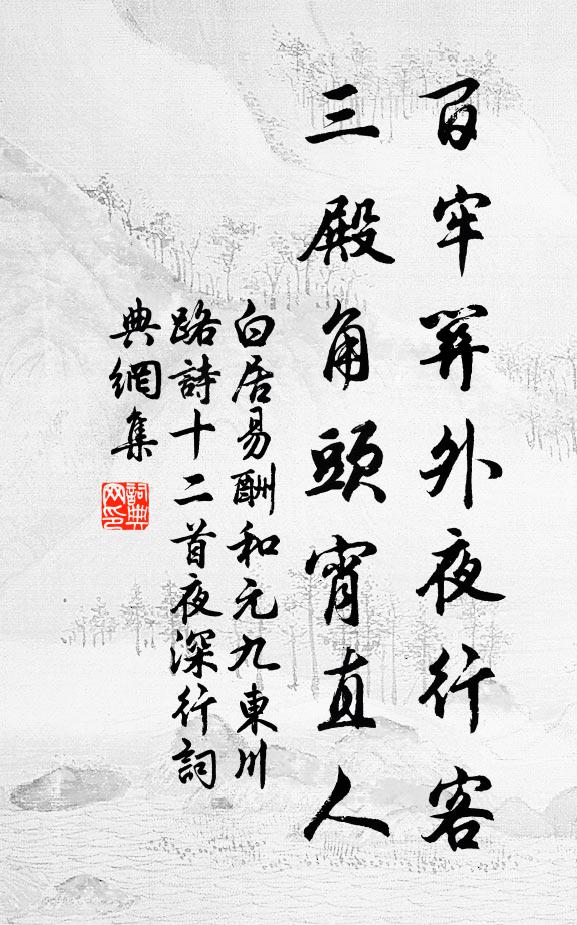 百牢關外夜行客
三殿角頭宵直人
白居易酬和元九東川
路詩十二首夜深行詞
典網集
詞典
网印